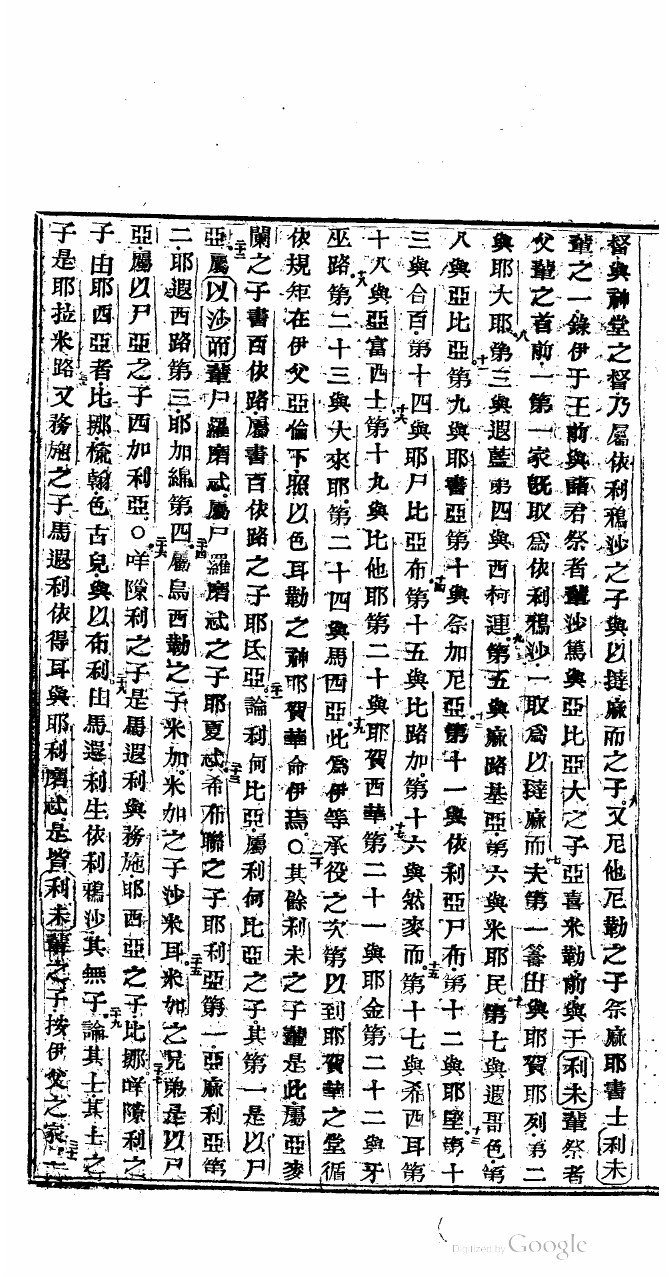 督與神堂之督乃屬依利鴉沙之子與以撻麻而之子又尼他尼勒之子祭麻耶書士利未
輩之一錄伊于王前與諸君祭者輩沙篤與亞比亞大之子亞喜米勒前與于利未輩祭者
父輩之首前一第一家旣取爲依利鴉沙一取爲以撻麻而夫第一籌出與耶賀耶列第二
與耶大耶第三與遐藍第四與西柯連第五與麻路基亞第六與米耶民第七與遐哥色第
八與亞比亞第九與耶書亞第十與祭加尼亞第十一與依利亞尸布第十二與耶堅第十
三與合百第十四與耶尸比亞布第十五與比路加第十六與然麥而第十七與希西耳第
十八與亞富西士第十九與比他耶第二十與耶賀西華第二十一與耶金第二十二與牙
巫路第二十三與大來耶第二十四與馬西亞此爲伊等承役之次第以到耶賀華之堂循
依規矩在伊父亞倫下照以色耳勒之神耶賀華命伊焉〇其餘利未之子輩是此屬亞麥
蘭之子書百依路屬書百依路之子耶氏亞論利何比亞屬利何比亞之子其第一是以尸
亞屬以沙而輩尸羅磨忒屬尸羅磨忒之子耶夏忒希布聯之子耶利亞第一亞麻利亞第
二耶遐西路第三耶加綿第四屬烏西勒之子米加米加之子沙米耳米加之兄弟是以尸
亞屬以尸亞之子西加利亞〇咩隙利之子是馬遐利與務施耶西亞之子比挪咩隙利之
子由耶西亞者比挪梳翰色古兒與以布利由馬遐利生依利鴉沙其無子論其士其士之
子是耶拉米路又務施之子馬遐利依得耳與耶利磨忒是皆利未輩之子按伊父之家
Digitized by Google